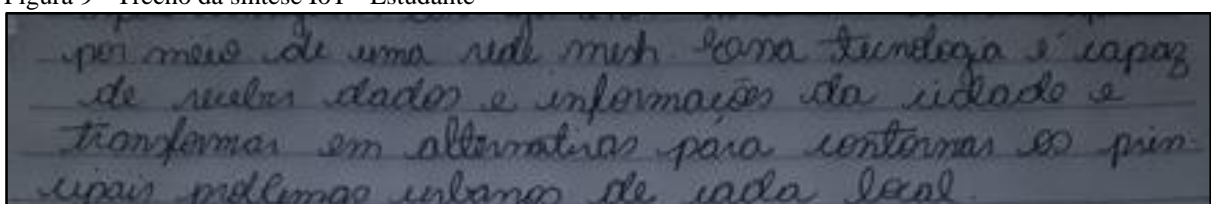 Figura 9 – Trecho da síntese IoT – Estudante
por meio de uma rede mesh essa tecnologia é capaz
de receber dados e informações da cidade e
transformar em alternativas para contornar os prin-
cipais problemas urbanos de cada local.